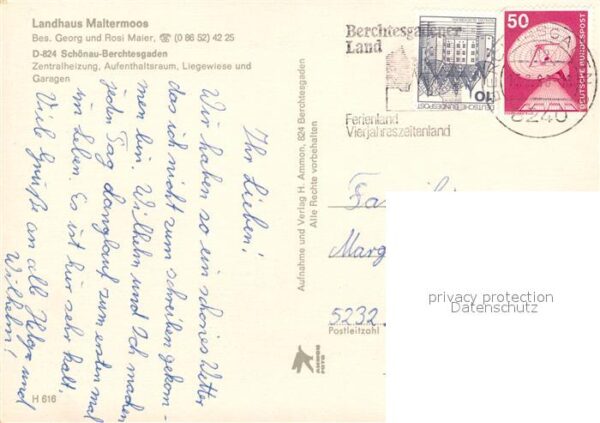 Landhaus Maltermoos
Bes. Georg und Rosi Maier, ☎ (0 86 52) 42 25
D-824 Schönau-Berchtesgaden
Zentralheizung, Aufenthaltsraum, Liegewiese und
Garagen
Ihr Lieben!
Wir haben so ein schönes Wetter
das ich nicht zum schreiben gekom-
men bin. Wilhelm und Ich machen
jeden Tag Langlauf zum ersten mal
im Leben. Es ist hir sehr kalt.
Viele Grüße an alle Helga und
Wilhelm!
H 616
Aufnahme und Verlag H. Ammon, 824 Berchtesgaden
Alle Rechte vorbehalten
AMMON
FOTO
Berchtesgadener
Land
Ferienland
Vierjahreszeitenland
10
DEUTSCHE BUNDESPOST
50
DEUTSCHE BUNDESPOST
BERCHTESGADEN
8240
Fa
Marg
5232
Postleitzahl
privacy protection
Datenschutz